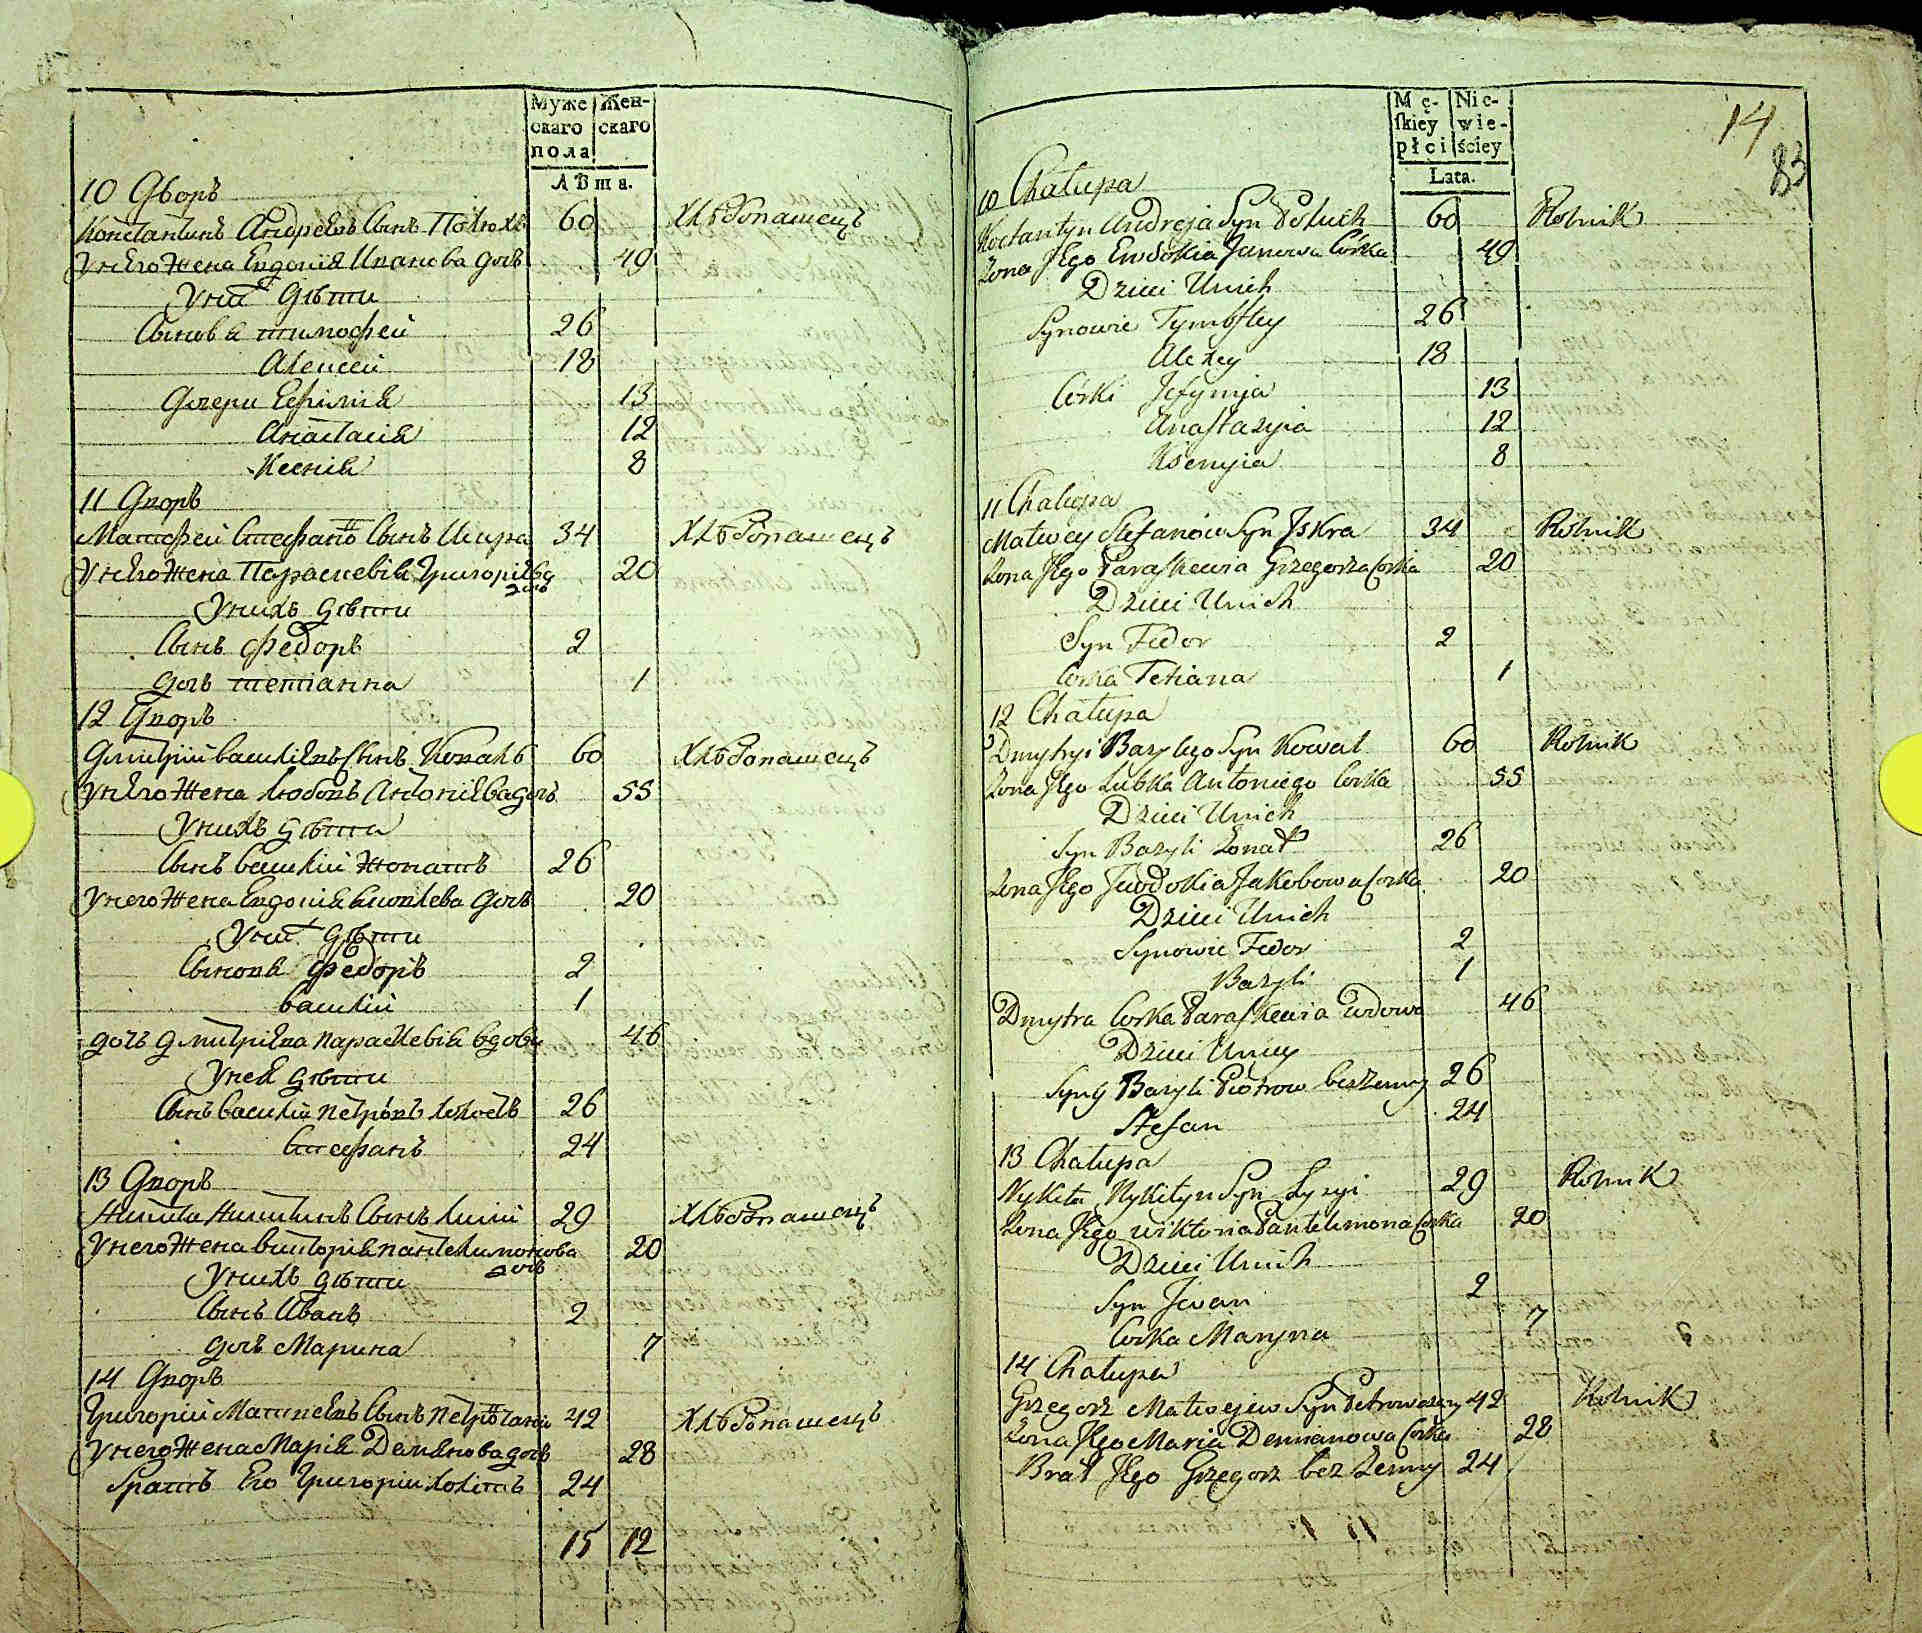 Муже Жен-
скаго скаго
пола
Лѣта.
10 Дворъ
Констаптинъ Андреевъ Сынъ Полюхъ 60 Хлѣбопашецъ
У него Жена Евдокія Иванова дочь 49
У нихъ Дѣти
Сыновья тимофей 26
Алексей 18
Дочери Ефимія 13
Анастасія 12
Ксенія 8
11 Дворъ
Матфей Стефановъ Сынъ Искра 34 Хлѣбопашецъ
У него Жена Параскевія Григоріева дочь 20
У нихъ дѣти
Сынъ Федоръ 2
дочь тетіанна 1
12 Дворъ
Дмитрій василіевъ Сынъ Коваль 60 Хлѣбопашецъ
У него Жена Любовъ Антоніева дочъ 55
У нихъ дѣти
Сынъ василій жонатъ 26
У него Жена Евдокія Яковлева дочь 20
У нихъ дѣти
Сыновя Федоръ 2
василій 1
дочь дмитріева параскевія вдова 46
У неи дѣти
Сынъ василій петровъ холостъ 26
Стефанъ 24
13 Дворъ
Никита Никитинъ Сынъ Лисій 29 Хлѣбопашецъ
У него Жена викторія пантелимонова дочь 20
У нихъ дѣти
Сынъ Иванъ 2
дочь Марина 7
14 Дворъ
Григорій Матвеевъ Сынъ 42 Хлѣбопашецъ
У него Жена Марія Демянова дочь 28
братъ Его Григоріи холостъ 24
15 12
14
83
Mę- Nie-
ſkiey wie-
płci ściey
Lata.
10 Chałupa
Kostantyn Andreja Syn Poluch 60 Rolnik
Żona Jego Ewdokia Janowa Corka 49
Dzieci Unich
Synowie Tymofſey 26
Alexey 18
Córki Jefymja 13
Anaſtazyia 12
Ksenyia 8
11 Chałupa
Matwey Stefanow Syn Jskra 34 Rolnik
Żona Jego Paraſkewia Grzegorza Corka 20
Dzieci Unich
Syn Fedor 2
Corka Tetiana 1
12 Chałupa
Dmytryi Bazylego Syn Kowal 60 Rolnik
Żona Jego Lubka Antoniego Corka 55
Dzieci Unich
Syn Bazyli Żonat 26
Żona Jego Jewdokia Jakobowa Corka 20
Dzieci Unich
Synowie Fedor 2
Bazyli 1
Dmytra Corka Paraſkewia wdowa 46
Dzieci Uniey
Syny Bazyli Piotrow bezżenny 26
Stefan 24
13 Chałupa
Nykita Nykityn Syn Łysyi 29 Rolnik
Żona Jego wiktoria Pantelimona Corka 20
Dzieci Unich
Syn Jwan 2
Corka Maryna 7
14 Chałupa
Grzegorz Matwejew Syn 42 Rolnik
Żona Jego Maria Demianowa Corka 28
Brat Jego Grzegorz bez Żenny 24